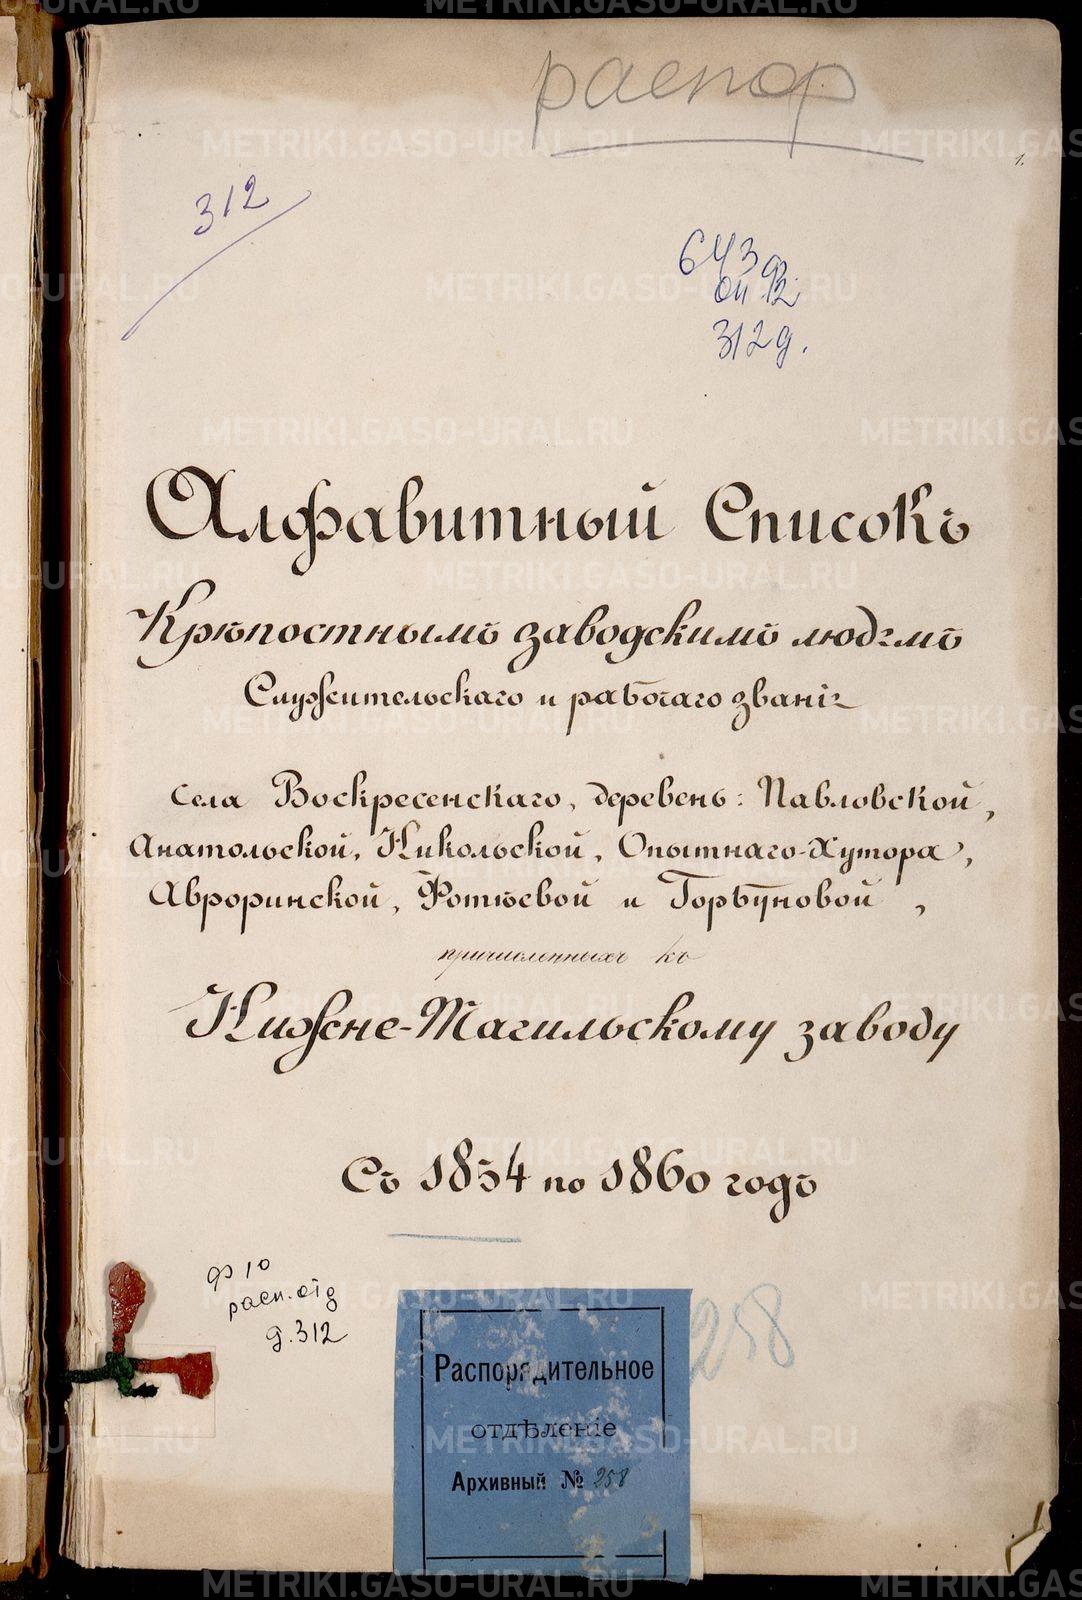 распор
1.
312
643 ф
оп 2
312 д.
Алфавитный Списокъ
Крѣпостнымъ заводскимъ людямъ
Служительскаго и рабочаго званія
села Воскресенскаго, деревень: Павловской,
Анатольской, Никольской, Опытнаго-Хутора,
Авроринской, Фотѣевой и Горбуновой,
причисленныхъ къ
Нижне-Тагильскому заводу
Съ 1854 по 1860 годъ
ф 10
расп. отд
д. 312
258
Распорядительное
отдѣленіе
Архивный № 258
METRIKI.GASO-URAL.RU